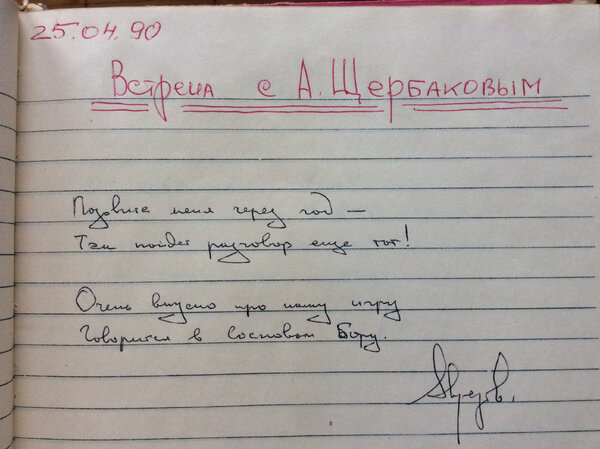 25.04.90
Встреча с А. Щербаковым
Позовите меня через год —
Там пойдет разговор еще тот!
Очень вкусно про нашу игру
Говорится в Сосновом Бору.